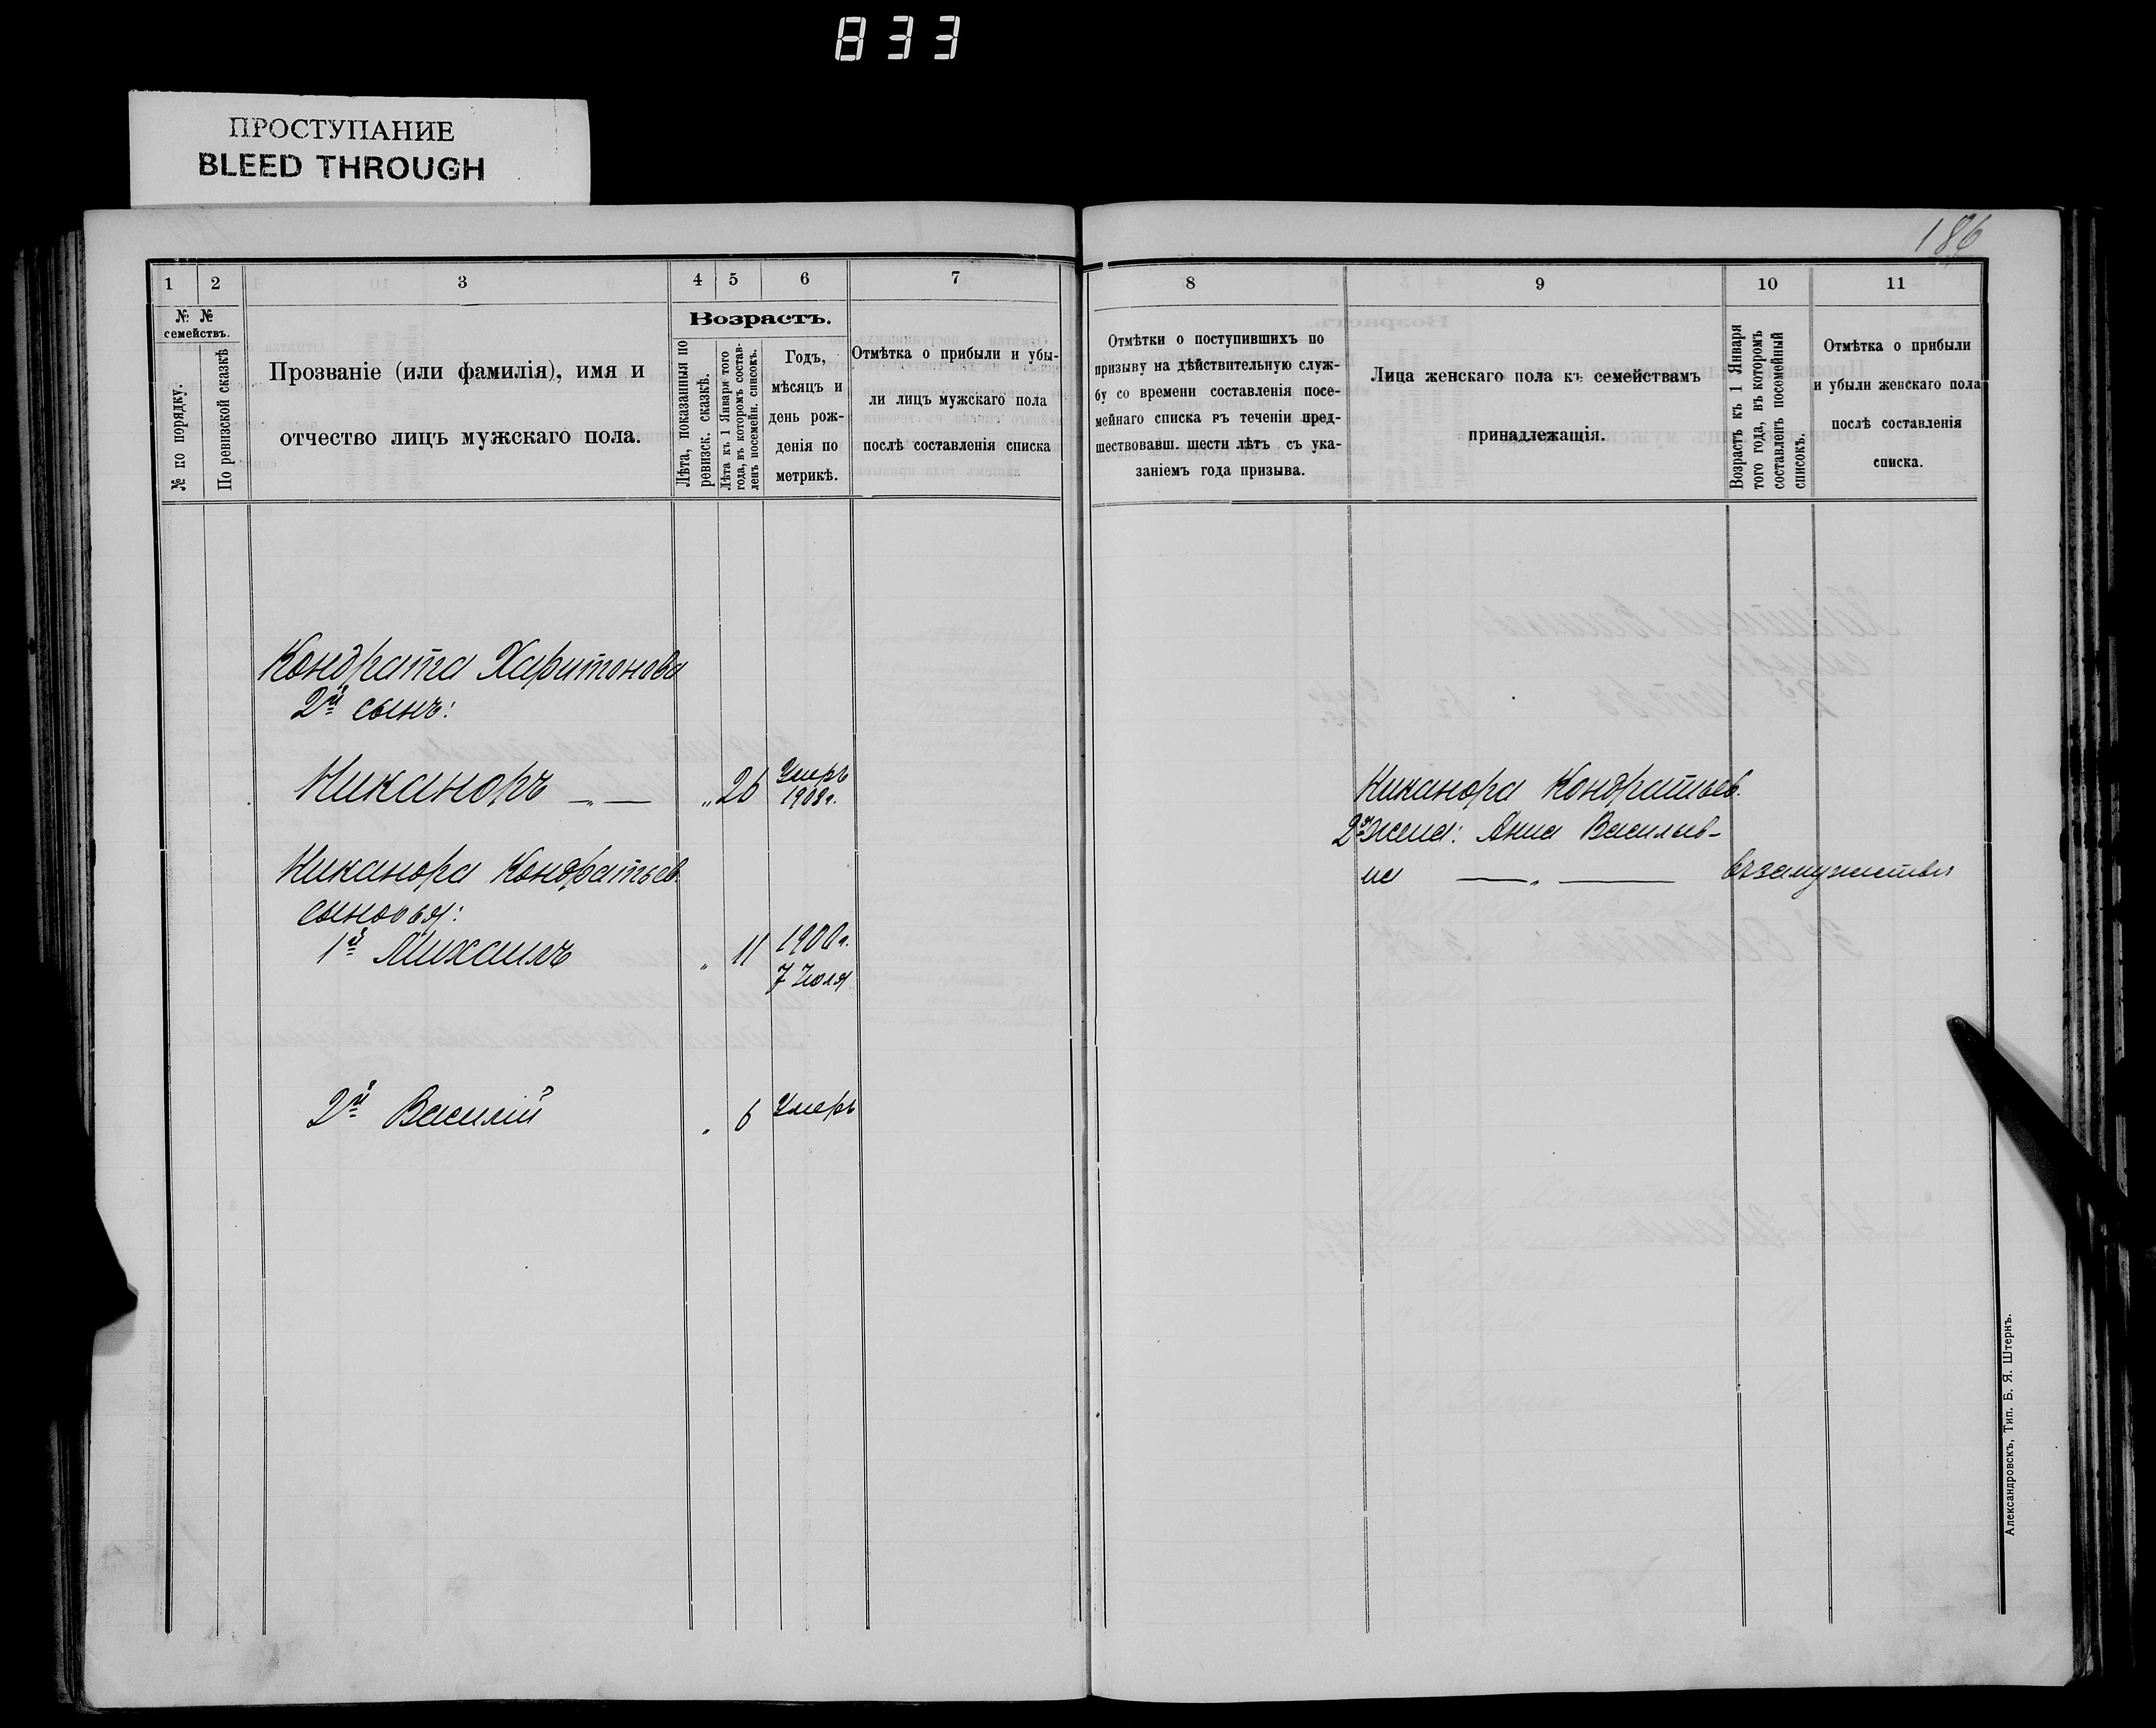 833
ПРОСТУПАНИЕ
BLEED THROUGH
186
1 2 3 4 5 6 7
№ № семействъ.
№ по порядку.
По ревизской сказкѣ
Прозваніе (или фамилія), имя и
отчество лицъ мужскаго пола.
Возрастъ.
Лѣта, показанныя по
ревизск. сказкѣ.
Лѣта къ 1 Января того
года, въ которомъ состав-
ленъ посемейн. списокъ.
Годъ,
мѣсяцъ и
день рож-
денія по
метрикѣ.
Отмѣтка о прибыли и убы-
ли лицъ мужскаго пола
послѣ составленія списка
Кондрата Харитонова
2й сынъ:
Никаноръ —„— „ 26 Умеръ
1908 г.
Никанора Кондратьев.
сыновья:
1й Михаилъ „ 11 1900 г.
7 Іюля
2й Василій „ 6 Умеръ
8 9 10 11
Отмѣтки о поступившихъ по
призыву на дѣйствительную служ-
бу со времени составленія посе-
мейнаго списка въ теченіи пред-
шествовавш. шести лѣтъ съ ука-
заніемъ года призыва.
Лица женскаго пола къ семействамъ
принадлежащія.
Возрастъ къ 1 Января
того года, въ которомъ
составленъ посемейный
списокъ.
Отмѣтка о прибыли
и убыли женскаго пола
послѣ составленія
списка.
Никанора Кондратьев.
2я жена: Анна Васильев-
на —„— въ замужествѣ
Александровскъ, Тип. Б. Я. Штернъ.